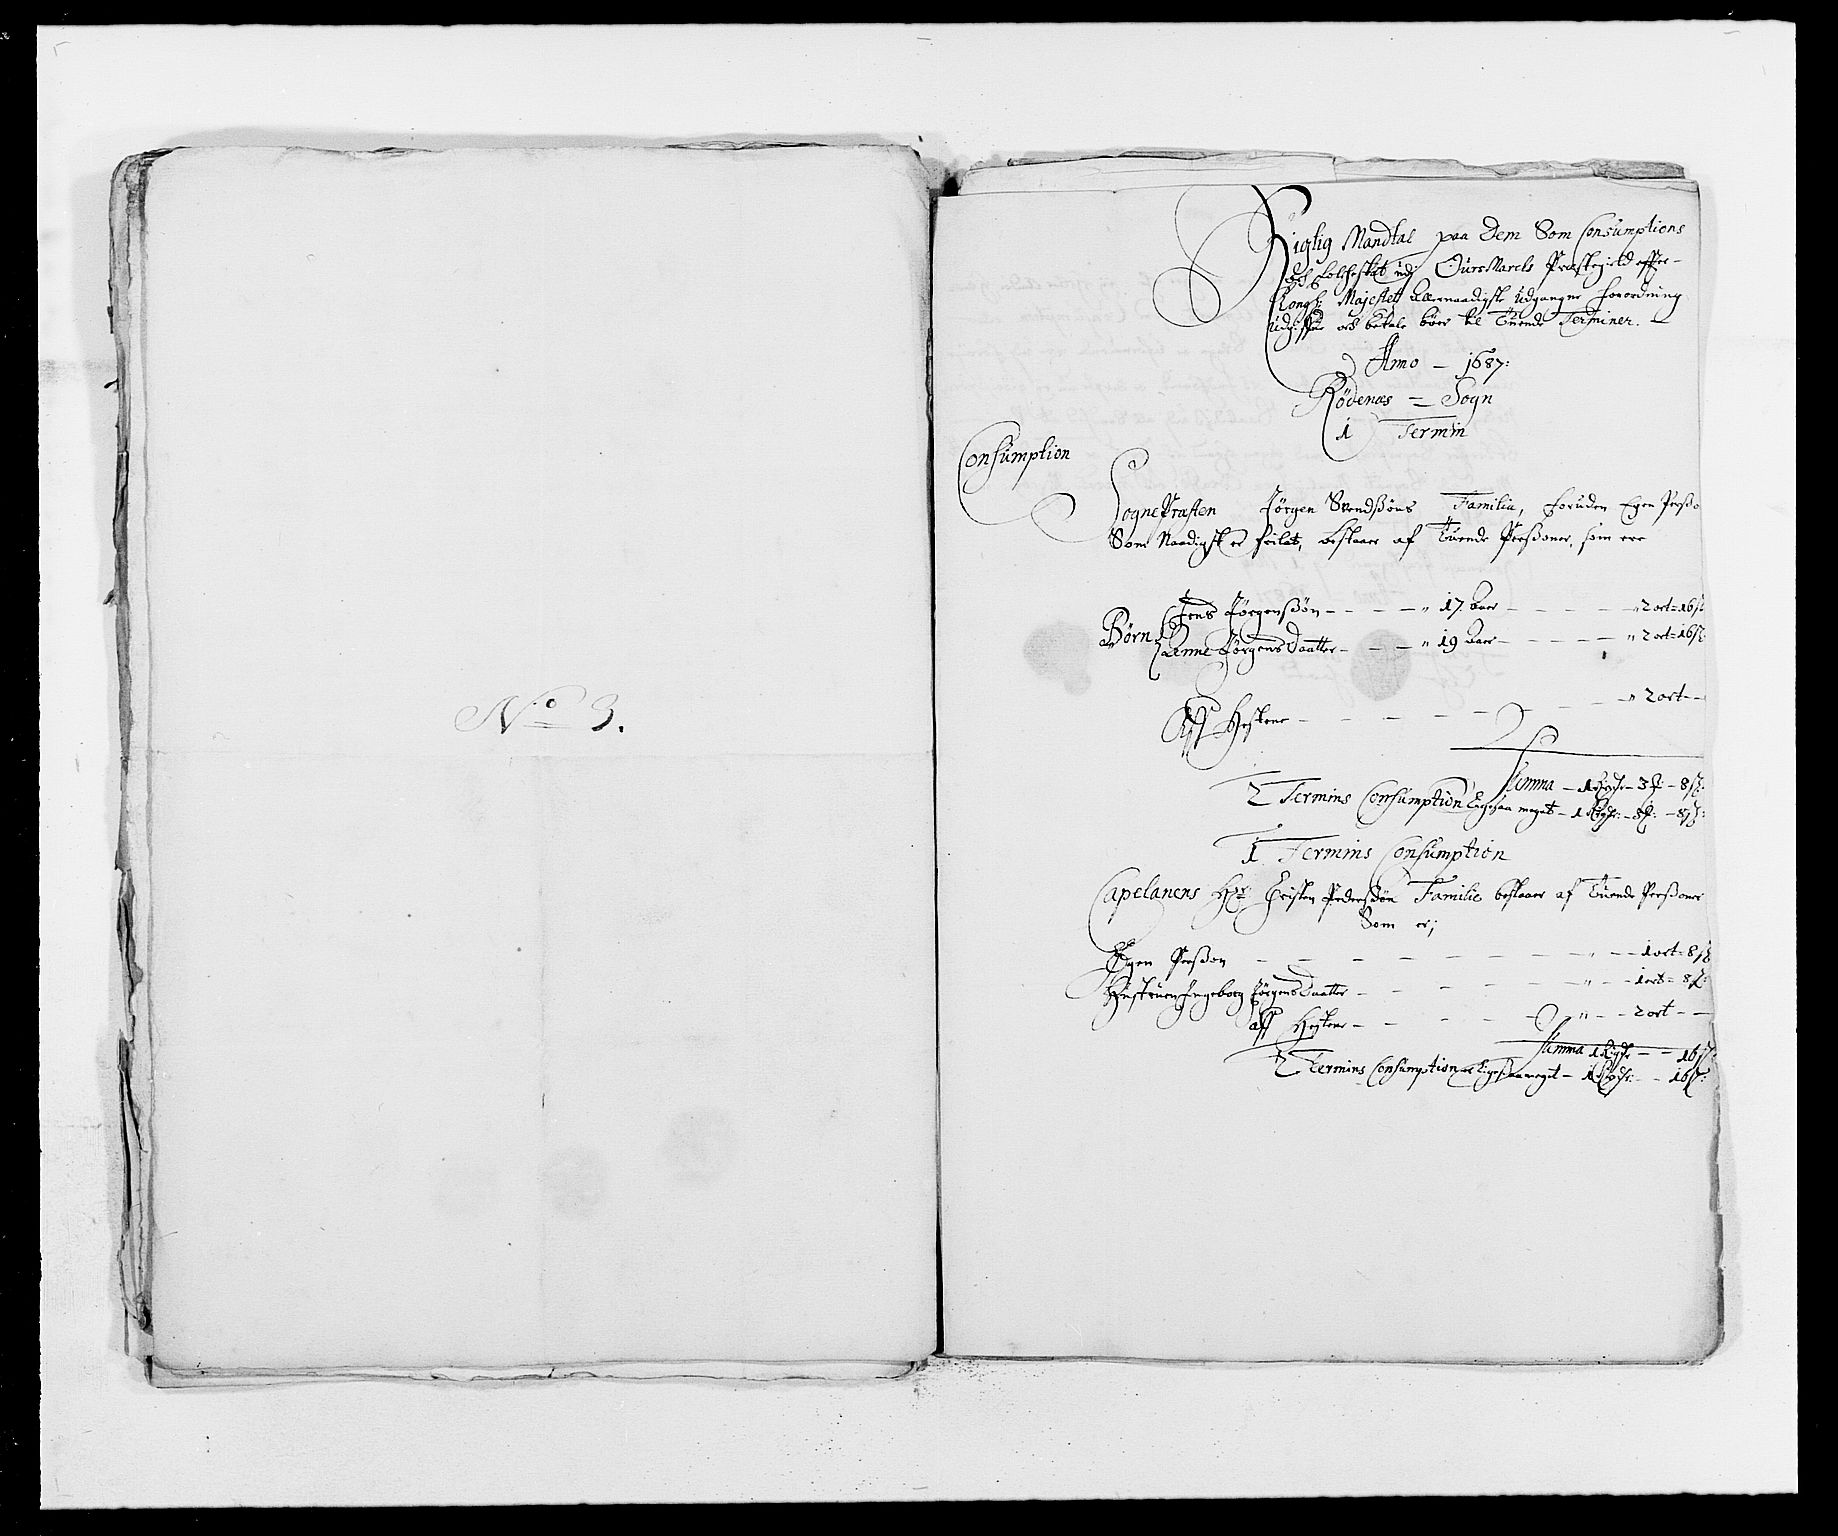 No 3.
Rigtig Mandtal paa Dem Som Consumptions
och folcheskat udj OursMarchs Præstegield effter
Kongl: Majestet Allernaadigste Udgangne forordning
Udgiffue och betale bøer til Tuende Terminer.
Anno - 1687:
Rødenæs = Sogn
1 Termin
Consumption
SognePræsten Jørgen Svendsøns Familia, foruden Egen Persso
Som Naadigst er friilat, bestaaer af Tuende Perssoner, som ere
Børn
Jens Jørgenssøn - - - - " 17 Aaer - - - - - " 2 ort = 16 ß
Anne JørgensDaatter - - - " 19 Aaer - - - - - " 2 ort = 16 ß
Aff Hestene - - - - - - - - " 2 ort -
Summa - 1 Rixdr - 3 - 8 ß:
2 Termins Consumption Ligesaa meget - 1 Rixdr: - 3 - 8 ß:
1 Termins Consumption
Capelanens Hr: Christen Pederssøn Familie bestaaer af Tuende Perssoner
Som er;
Egen Persson - - - - - - - - " - - 1 ort = 8 ß
Hustruen Ingeborg JørgensDaatter - - - - - " - - 1 ort = 8 ß:
aff Hestene - - - - - " - - 2 ort - -
Summa 1 Rixdr - - 16 ß:
2 Termins Consumption Ligesaameget - 1 Rixdr: - - 16 ß: